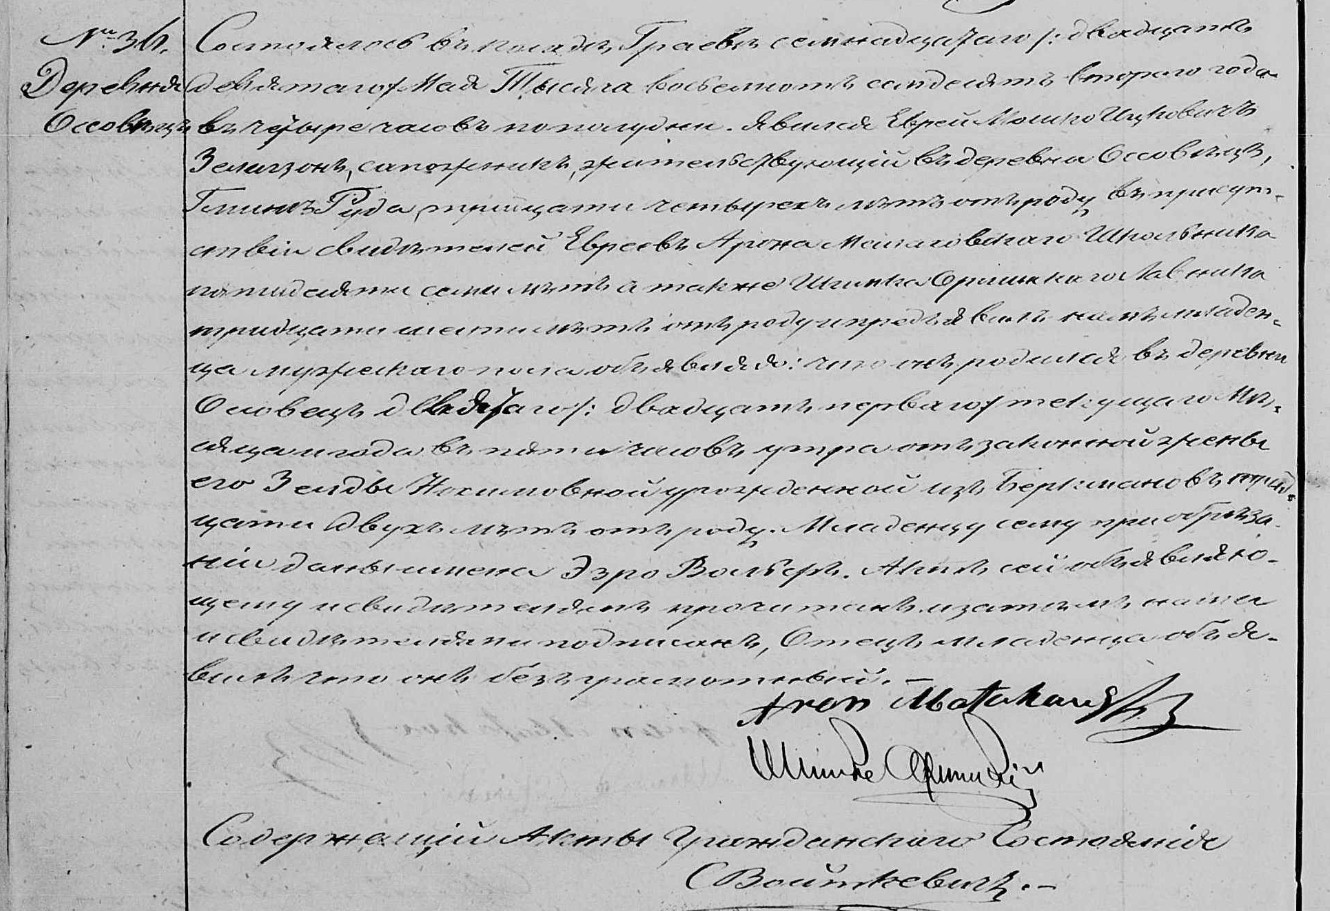 № 36.
Деревня
Оссовецъ
Состоялось въ посадѣ Граевѣ семнадцатаго /: двадцать
девятаго/ Мая Тысяча восемсотъ семдесятъ втораго года
въ четыре часовъ пополудни. Явился Еврей Мошко Ицковичъ
Зелигзонъ, сапожникъ, жительствующій въ деревнѣ Оссовецъ,
Гминѣ Руда, тридцати четырехъ лѣтъ отъ роду, въ присут-
ствіи свидѣтелей Евреевъ Арона Школьника
пятидесяти семи лѣтъ а также Шимка Лавника
тридцати шести лѣтъ отъ роду и предъявилъ намъ младен-
ца мужескаго пола объявляя: что онъ родился въ деревни
Осовецъ девятаго /: двадцать перваго/ текущаго Мѣ-
сяца и года въ пяти часовъ утра отъ законной жены
его Зельды урожденной изъ Беркмановъ трид-
цати двухъ лѣтъ отъ роду. Младенцу сему при обрѣза-
ніи даны имена Эзро Вольфъ. Актъ сей объявляю-
щему и свидѣтелямъ прочитанъ, и затемъ нами
и свидѣтелями подписанъ, Отецъ младенца объя-
вилъ что онъ безграмотный. —
Aron
Шимке
Содержащій Акты Гражданскаго Состоянія
Войткевичъ. —